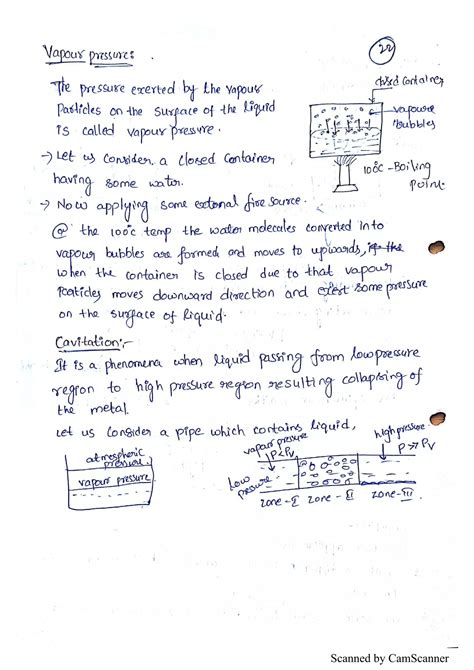 Vapour pressure:
22
The pressure exerted by the vapour
Particles on the surface of the liquid
is called vapour pressure.
closed Container
vapour
Bubbles
100°C - Boiling
Point.
→ Let us Consider a closed Container
having some water.
→ Now applying some external fire source.
@ the 100°c temp the water molecules converted into
vapour bubbles are formed and moves to upwards,
when the container is closed due to that vapour
Particles moves downward direction and exert some pressure
on the surface of liquid.
Cavitation:-
It is a phenomena when liquid passing from low pressure
region to high pressure region resulting collapsing of
the metal.
Let us Consider a pipe which contains liquid,
atmospheric
pressure.
vapour pressure
vapour pressure
P<Pv
high pressure
P>>Pv
Low
pressure
zone-I zone-II zone-III
Scanned by CamScanner